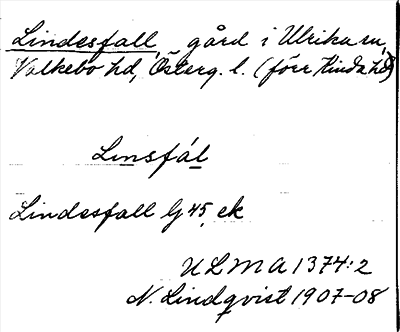 Lindesfall, gård i Ulrika sn,
Valkebo hd, Österg. l. (förr Kinda hd)
Linsfál
Lindesfall G 45, ek
ULMA 1374:2
N. Lindqvist 1907-08